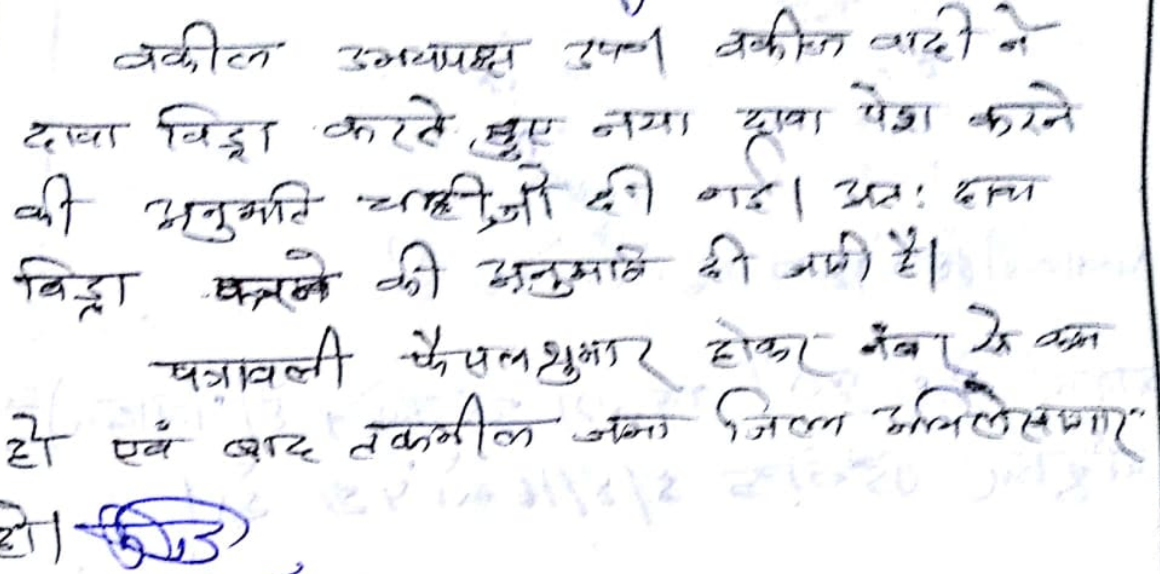 वकील उभयपक्ष उप० वकील वादी ने
दावा विड्रा करते हुए नया दावा पेश करने
की अनुमति चाही जो दी गई। अतः दावा
विड्रा करने की अनुमति दी जाती है।
पत्रावली फैसलशुमार होकर नंबर से कम
हो एवं बाद तकमील जमा जिला अभिलेखागार
हो।